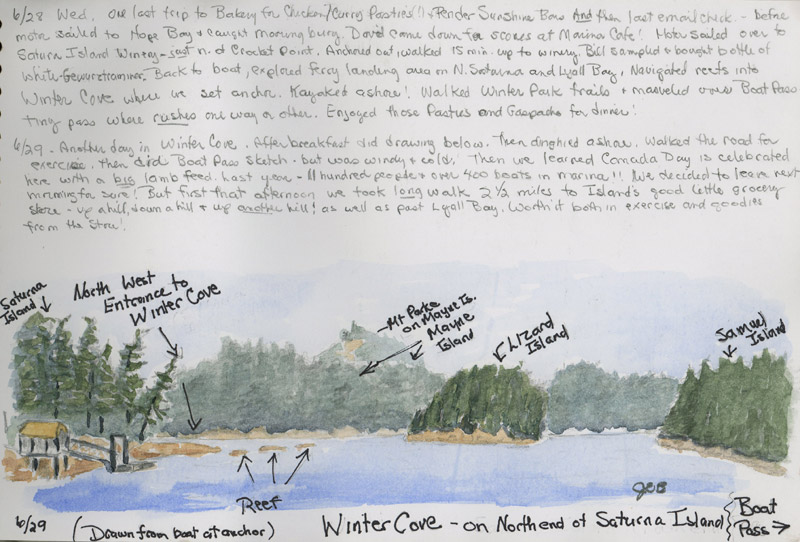 6/28 Wed. One last trip to Bakery for Chicken/Curry Pasties!! & Pender Sunshine Bars And then last email check. - before
motor sailed to Hope Bay & caught mooring buoy. David came down for scones at Marina Cafe! Motor sailed over to
Saturna Island Winery - just n. of Crocket Point. Anchored out, walked 15 min. up to winery. Bill sampled & bought bottle of
white-Gewurztraminer. Back to boat, explored ferry landing area on N. Saturna and Lyall Bay, Navigated reefs into
Winter Cove where we set anchor. Kayaked ashore! Walked Winter Park trails & marveled over Boat Pass -
tiny pass where rushes one way or other. Enjoyed those Pasties and Gaspacho for dinner!
6/29 - Another day in Winter Cove. After breakfast did drawing below. Then dinghied ashore. Walked the road for
exercise, then did Boat Pass sketch - but was windy & cold. Then we learned Canada Day is celebrated
here with a big lamb feed. Last year - 11 hundred people & over 400 boats in marina!! We decided to leave next
morning for sure! But first that afternoon we took long walk 2 1/2 miles to Island's good little grocery
store - up a hill, down a hill & up another hill! as well as past Lyall Bay. Worth it both in exercise and goodies
from the store!
Saturna
Island
North West
Entrance to
Winter Cove
Mt Parke
on Mayne Is.
Mayne
Island
Lizard
Island
Samuel
Island
Reef
JEB
6/29
(Drawn from boat at anchor)
Winter Cove - on North end of Saturna Island
Boat
Pass